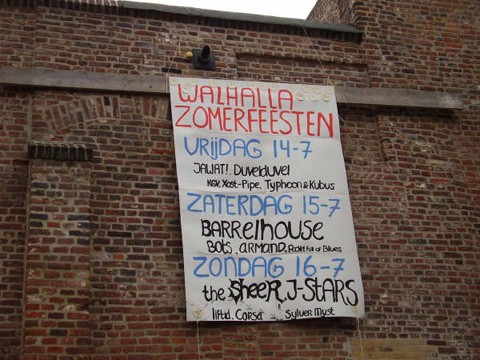 WALHALLA
ZOMERFEESTEN
VRIJDAG 14-7
JAWAT! Duvelduvel
KGV. Xast-Pipe, Typhoon & Kubus
ZATERDAG 15-7
BARRelhouse
Bots, ARMAND, Pocket full of Blues
ZONDAG 16-7
the SheeR, J-STARS
liftid, Corsa, Sylver Myst